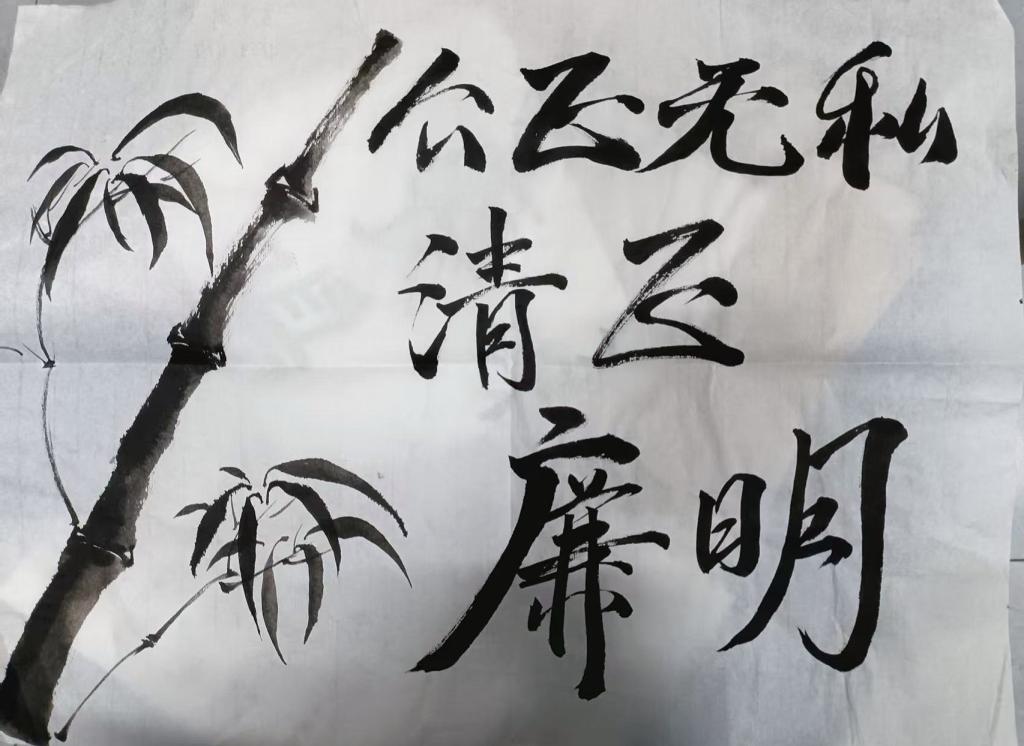 公正无私
清正
廉明